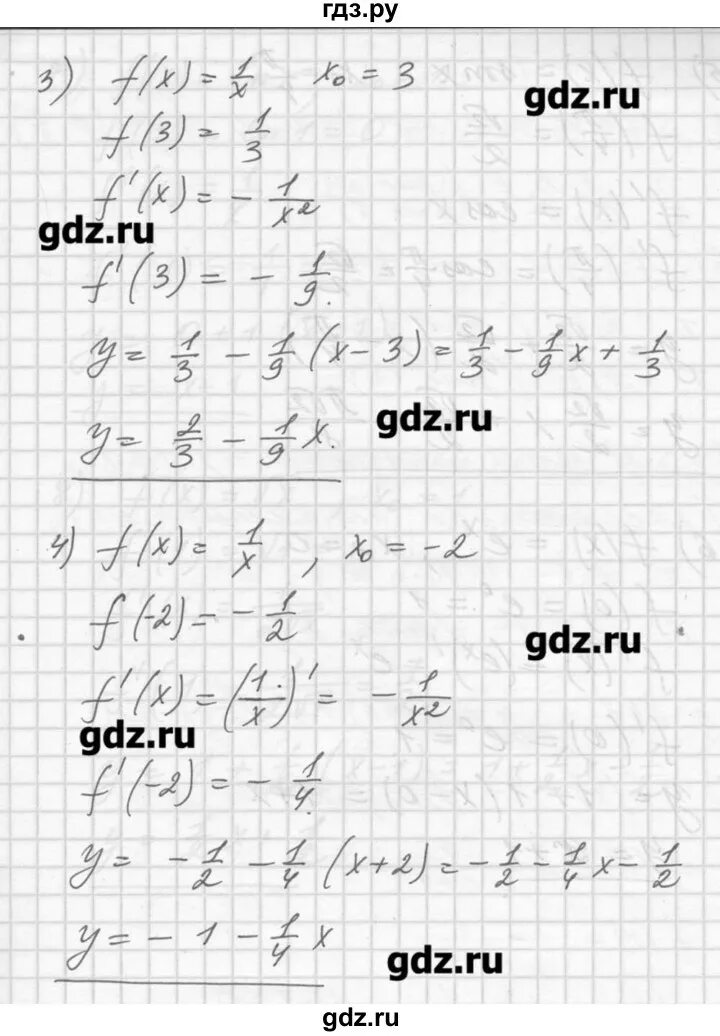 гдз.ру
3) f(x) = 1/x   x₀ = 3
gdz.ru
f(3) = 1/3
f'(x) = - 1/x²
gdz.ru
f'(3) = - 1/9.
y = 1/3 - 1/9 (x - 3) = 1/3 - 1/9 x + 1/3
gdz.ru
y = 2/3 - 1/9 x.
4) f(x) = 1/x , x₀ = -2
f(-2) = - 1/2
gdz.ru
f'(x) = (1/x)' = - 1/x²
gdz.ru
f'(-2) = - 1/4.
y = - 1/2 - 1/4 (x + 2) = - 1/2 - 1/4 x - 1/2
y = - 1 - 1/4 x
gdz.ru
gdz.ru